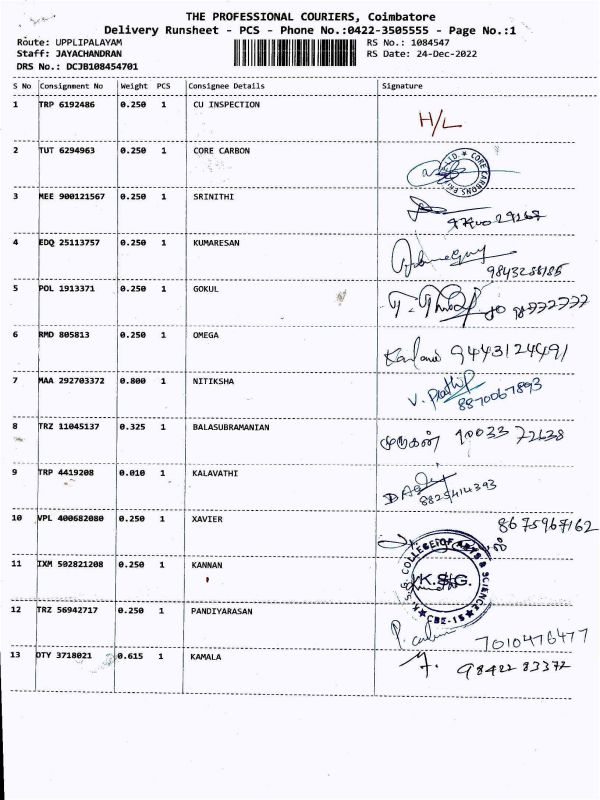 THE PROFESSIONAL COURIERS, Coimbatore
Delivery Runsheet - PCS - Phone No.:0422-3505555 - Page No.:1
Route: UPPLIPALAYAM RS No.: 1084547
Staff: JAYACHANDRAN RS Date: 24-Dec-2022
DRS No.: DCJB108454701
S No Consignment No Weight PCS Consignee Details Signature
1 TRP 6192486 0.250 1 CU INSPECTION H/L
2 TUT 6294963 0.250 1 CORE CARBON CORE CARBONS
3 MEE 900121567 0.250 1 SRINITHI
4 EDQ 25113757 0.250 1 KUMARESAN
5 POL 1913371 0.250 1 GOKUL
6 RMD 805813 0.250 1 OMEGA 9443124491
7 MAA 292703372 0.800 1 NITIKSHA V. Prathip 8870067893
8 TRZ 11045137 0.325 1 BALASUBRAMANIAN முருகன்
9 TRP 4419208 0.010 1 KALAVATHI
10 VPL 400682080 0.250 1 XAVIER 8675967162
11 IXM 502821208 0.250 1 KANNAN K.S.G. COLLEGE OF ARTS & SCIENCE CBE-15 K.S.G.
12 TRZ 56942717 0.250 1 PANDIYARASAN 7010476477
13 DTY 3718021 0.615 1 KAMALA 98422 83372